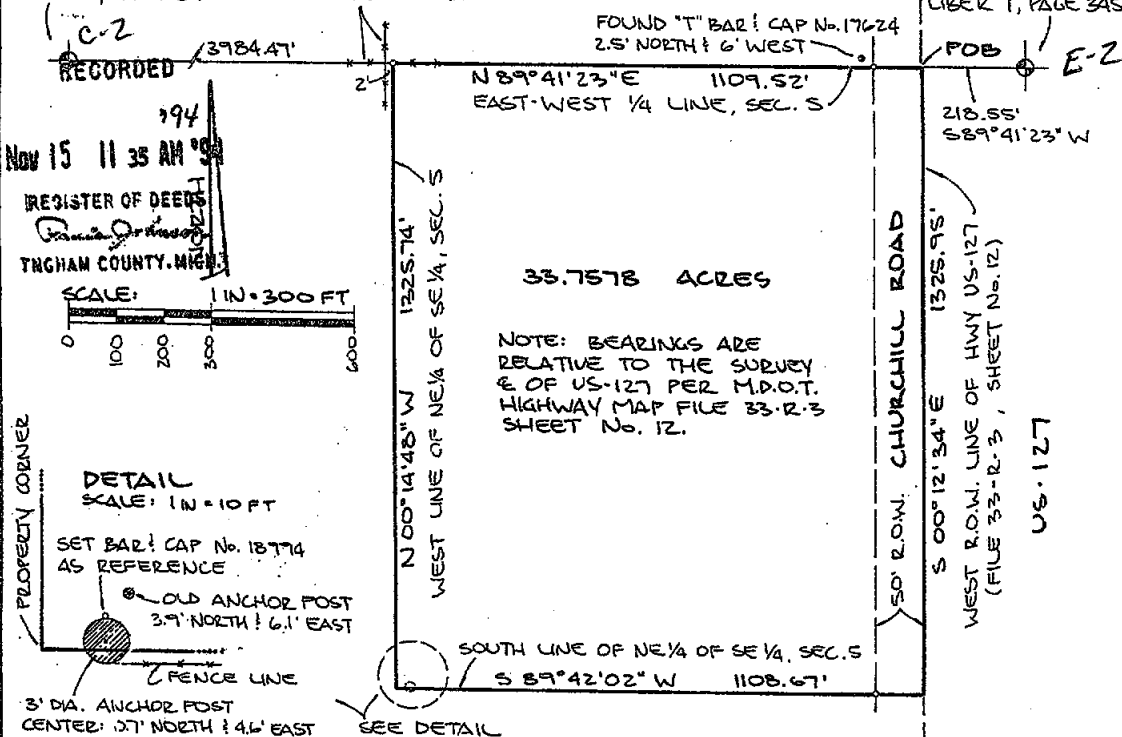 LIBER 1, PAGE 345
C-2
3984.47'
FOUND "T" BAR & CAP No. 17624
2.5' NORTH & 6' WEST
POB
E-2
RECORDED
2'
N 89°41'23"E 1109.52'
EAST-WEST 1/4 LINE, SEC. 5
218.55'
S89°41'23"W
'94
Nov 15 11 35 AM '94
REGISTER OF DEEDS
INGHAM COUNTY, MICH.
NORTH
SCALE: 1 IN = 300 FT
0 100 200 300 600
N 00°14'48" W 1325.74'
WEST LINE OF NE1/4 OF SE1/4, SEC. 5
33.7578 ACRES
NOTE: BEARINGS ARE
RELATIVE TO THE SURVEY
℄ OF US-127 PER M.D.O.T.
HIGHWAY MAP FILE 33-R-3
SHEET No. 12.
50' R.O.W. CHURCHILL ROAD
S 00°12'34"E 1325.95'
WEST R.O.W. LINE OF HWY US-127
(FILE 33-R-3, SHEET No. 12)
US-127
PROPERTY CORNER
DETAIL
SCALE: 1 IN = 10 FT
SET BAR & CAP No. 18994
AS REFERENCE
OLD ANCHOR POST
3.9' NORTH & 6.1' EAST
FENCE LINE
3' DIA. ANCHOR POST
CENTER: 0.7' NORTH & 4.6' EAST
SEE DETAIL
SOUTH LINE OF NE1/4 OF SE1/4, SEC. 5
S 89°42'02" W 1108.67'